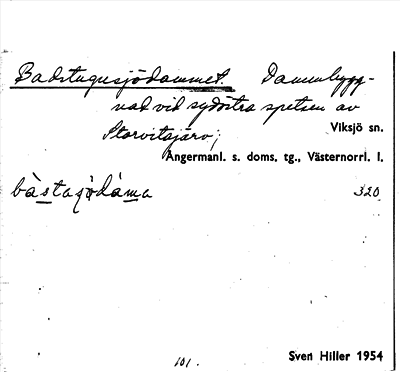 Badstugusjödammet. Dammbygg-
nad vid sydöstra spetsen av
Storvitsjärv;
Viksjö sn.
Ångermanl. s. doms. tg., Västernorrl. l.
bàstasjödáma
320
101.
Sven Hiller 1954